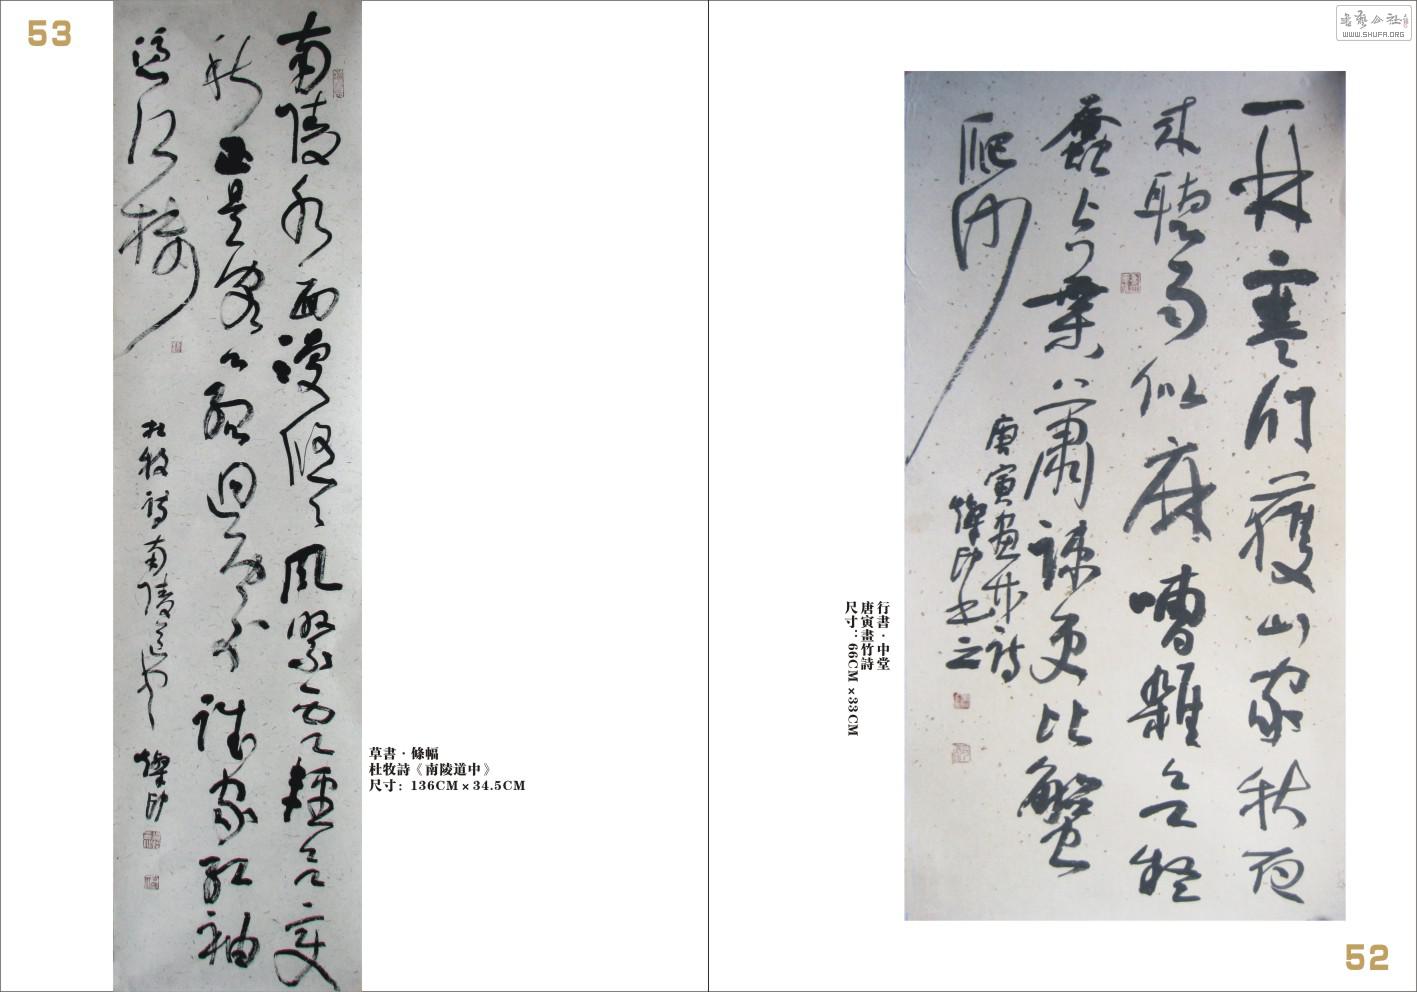 53
南陵水面漫悠〻風緊雲輕欲变
秋正是客心孤迥處誰家紅袖
江樓
杜牧詩南陵道中
燦印
草書·條幅
杜牧詩《南陵道中》
尺寸：136CM×34.5CM
WWW.SHUFA.ORG
一林寒竹護山家秋夜
来聽雨似麻嘈雜欲疑
蠶上葉蕭疎更比蟹
爬沙
唐寅畫竹詩
燦印書之
行書·中堂
唐寅畫竹詩
尺寸：66CM×33CM
52